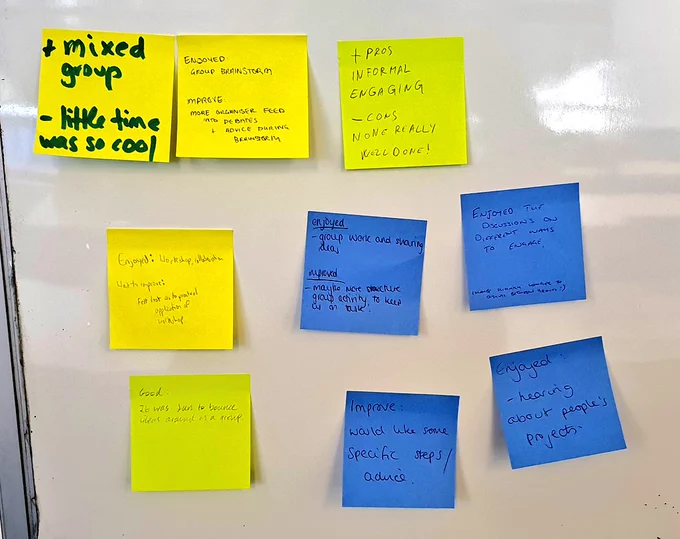 + mixed
group
- little time
was so cool
ENJOYED
GROUP BRAINSTORM
IMPROVE
MORE ORGANISER FEED
INTO DEBATES
+ ADVICE DURING
BRAINSTORM
+ PROS
INFORMAL
ENGAGING
- CONS
NONE REALLY
WELL DONE!
Enjoyed: Workshop, collaboration
to improve:
application of
workshop.
enjoyed
- group work and sharing
ideas
improved
- maybe more structure
group activity, to keep
us on task!
ENJOYED THE
DISCUSSIONS ON
DIFFERENT WAYS
TO ENGAGE.
Good:
It was fun to bounce
ideas around as a group.
Improve:
would like some
specific steps/
advice.
Enjoyed:
- hearing
about people's
projects.